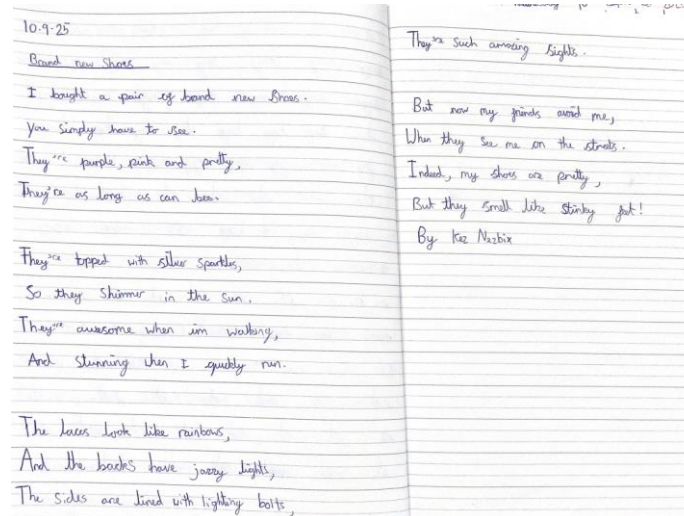 10.9.25
Brand new Shoes
I bought a pair of brand new Shoes.
You simply have to see.
They're purple, pink and pretty,
They're as long as can bee.
They're topped with silver sparkles,
So they shimmer in the sun.
They're awesome when im walking,
And stunning when I quickly run.
The laces look like rainbows,
And the backs have jazzy lights,
The sides are lined with lighting bolts,
They're such amazing sights.
But now my friends avoid me,
When they see me on the streets.
Indeed, my shoes are pretty,
But they smell like stinky feet!
By Kez Nazbix